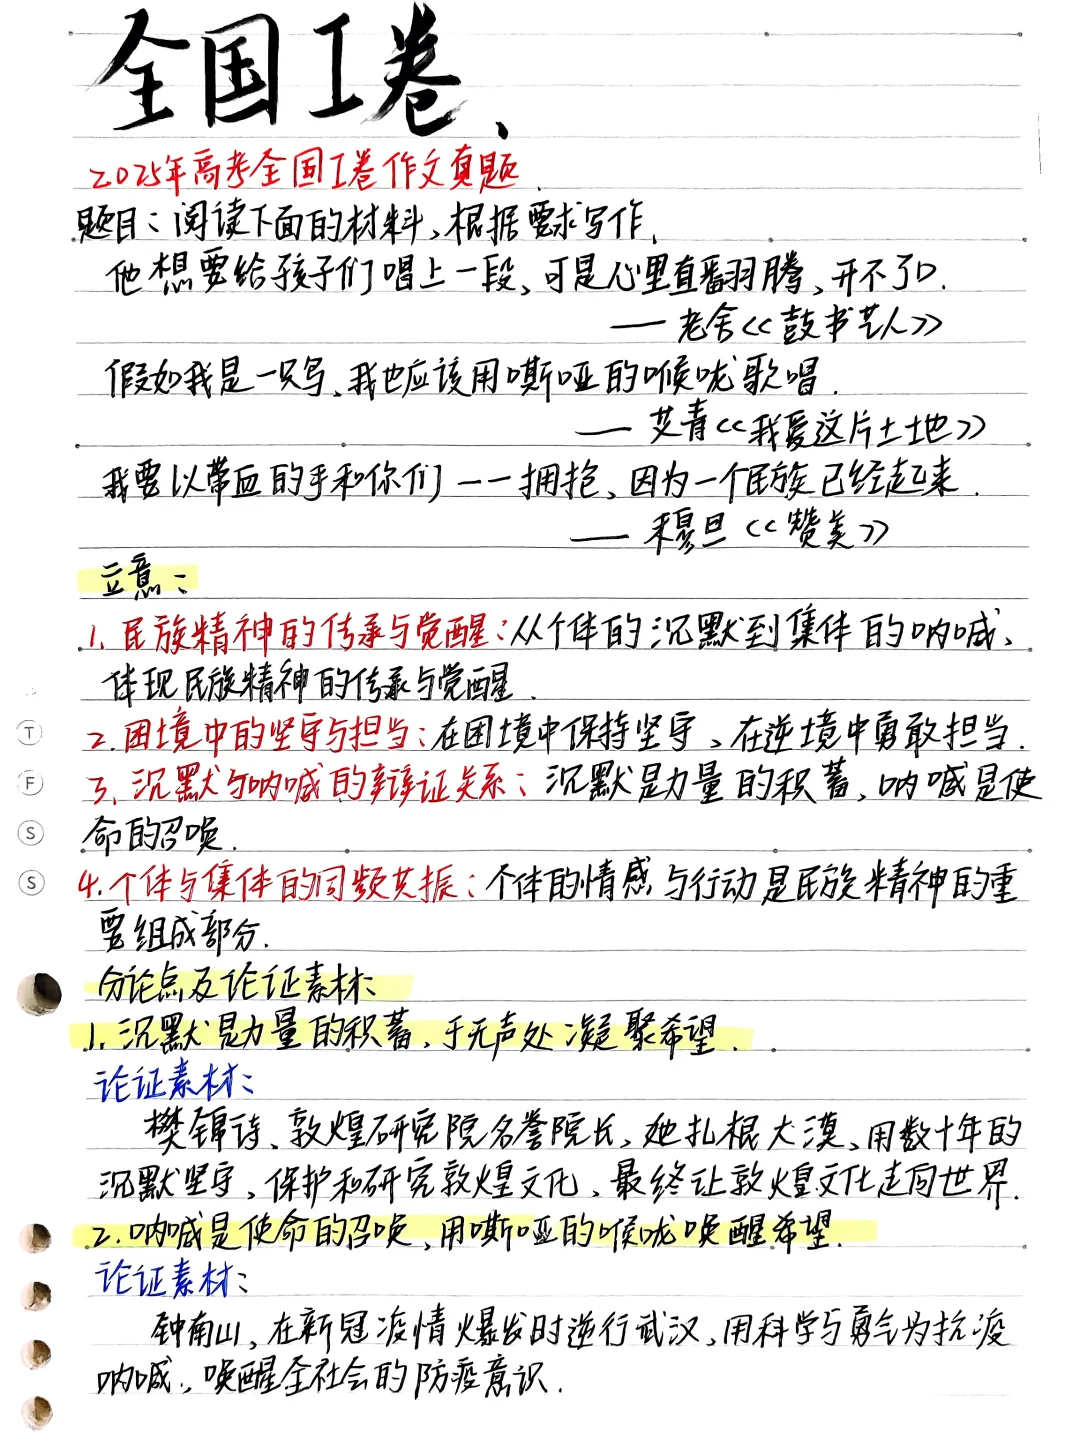 全国I卷、
2025年高考全国I卷作文真题.
题目：阅读下面的材料,根据要求写作.
他想要给孩子们唱上一段,可是心里直翻腾,开不了口.
—老舍《鼓书艺人》
假如我是一只鸟、我也应该用嘶哑的喉咙歌唱.
—艾青《我爱这片土地》
我要以带血的手和你们一一拥抱、因为一个民族已经起来.
—穆旦《赞美》
立意：
1.民族精神的传承与觉醒：从个体的沉默到集体的呐喊、
体现民族精神的传承与觉醒.
2.困境中的坚守与担当：在困境中保持坚守、在逆境中勇敢担当.
3.沉默与呐喊的辩证关系：沉默是力量的积蓄,呐喊是使
命的召唤.
4.个体与集体的同频共振：个体的情感与行动是民族精神的重
要组成部分.
分论点及论证素材：
1.沉默是力量的积蓄,于无声处凝聚希望.
论证素材：
樊锦诗、敦煌研究院名誉院长,她扎根大漠、用数十年的
沉默坚守,保护和研究敦煌文化、最终让敦煌文化走向世界.
2.呐喊是使命的召唤,用嘶哑的喉咙唤醒希望.
论证素材：
钟南山,在新冠疫情爆发时逆行武汉,用科学与勇气为抗疫
呐喊.,唤醒全社会的防疫意识.
T
F
S
S